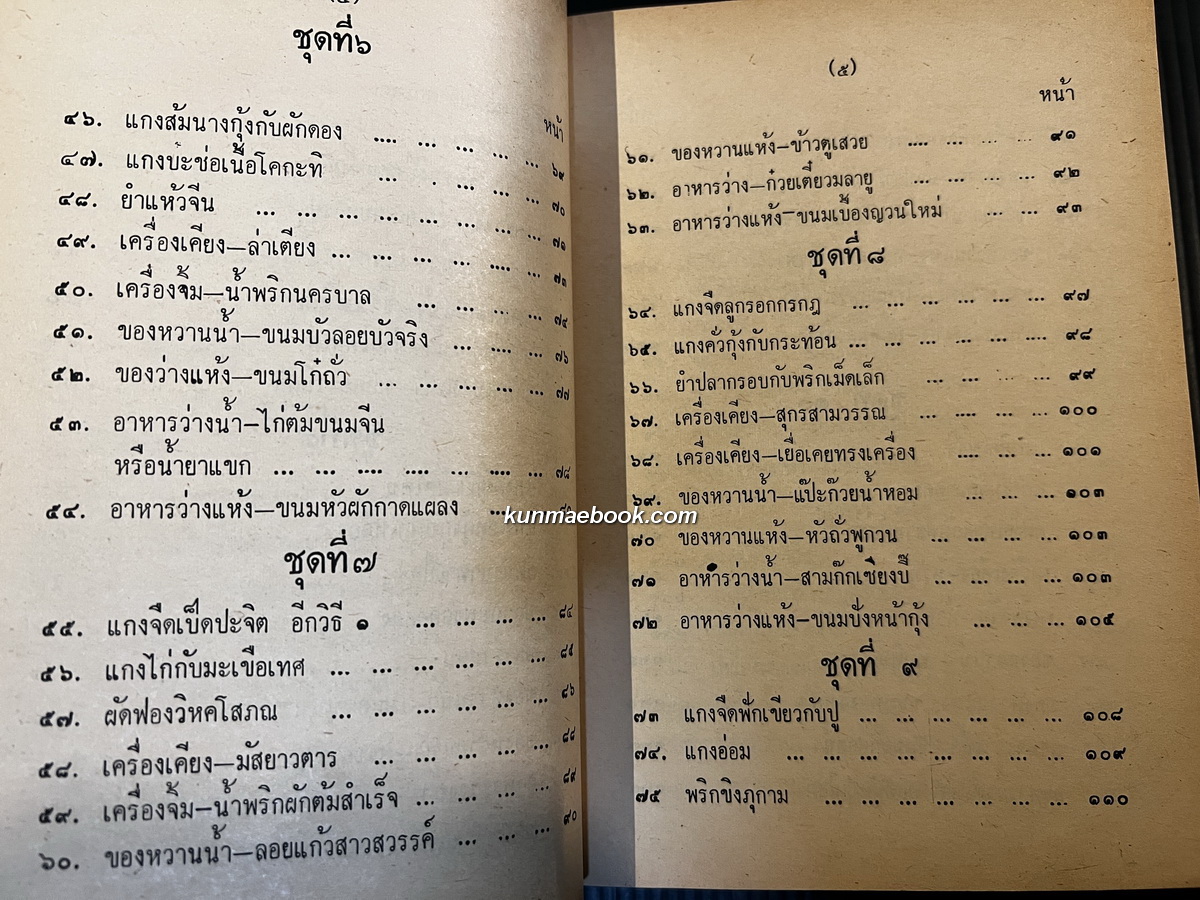 ชุดที่ ๖
หน้า
๔๖. แกงส้มนางกุ้งกับผักดอง .... ... ... ... ... ๖๙
๔๗. แกงบะช่อเนื้อโคกะทิ ... . ... .... ... ๗๐
๔๘. ยำแห้วจีน ... ... ... ... ... ... ... ๗๑
๔๙. เครื่องเคียง—ล่าเตียง ... ... ... ... .... ... ๗๓
๕๐. เครื่องจิ้ม—น้ำพริกนครบาล ... ... ... ... ๗๔
๕๑. ของหวานน้ำ—ขนมบัวลอยบัวจริง ... .... ... ๗๖
๕๒. ของว่างแห้ง—ขนมโก๋ถั่ว ... ... ... ... ... ๗๗
๕๓. อาหารว่างน้ำ—ไก่ต้มขนมจีน
หรือน้ำยาแขก ... ... .... .... ... .... ... ๗๘
๕๔. อาหารว่างแห้ง—ขนมหัวผักกาดแผลง ...
ชุดที่ ๗
๕๕. แกงจืดเป็ดปะจิต อีกวิธี ๑ ... ... ... ... ๘๔
๕๖. แกงไก่กับมะเขือเทศ ... ... ... ... ... ... ๘๕
๕๗. ผัดฟองวิหคโสภณ ... ... ... ... ... ... ๘๖
๕๘. เครื่องเคียง—มัสยาวตาร ... ... ... ... ... ๘๘
๕๙. เครื่องจิ้ม—น้ำพริกผักต้มสำเร็จ ... ... ... ... ๘๙
๖๐. ของหวานน้ำ—ลอยแก้วสาวสวรรค์ ... ... ... ๙๐
kunmaebook.com
(๕)
หน้า
๖๑. ของหวานแห้ง—ข้าวตูเสวย .... ... ... ... ๙๑
๖๒. อาหารว่าง—ก๋วยเตี๋ยวมลายู ... ... ... ... ๙๒
๖๓. อาหารว่างแห้ง—ขนมเบื้องญวนใหม่ ... ... ๙๓
ชุดที่ ๘
๖๔. แกงจืดลูกรอกกรกฎ ... ... ... ... ... ... ๙๗
๖๕. แกงคั่วกุ้งกับกระท้อน ... ... ... ... ... .... ๙๘
๖๖. ยำปลากรอบกับพริกเม็ดเล็ก ... ... ... ... ๙๙
๖๗. เครื่องเคียง—สุกรสามวรรณ ... .... ... ... ๑๐๐
๖๘. เครื่องเคียง—เยื่อเคยทรงเครื่อง .... ... ... ๑๐๑
๖๙. ของหวานน้ำ—แป๊ะก๊วยน้ำหอม ... ... ... ๑๐๓
๗๐ ของหวานแห้ง—หัวถั่วพูกวน ... ... ... ... ๑๐๓
๗๑ อาหารว่างน้ำ—สามก๊กเซียงบี๊ ... ... ... ... ๑๐๓
๗๒ อาหารว่างแห้ง—ขนมปังหน้ากุ้ง ... ... ... ๑๐๕
ชุดที่ ๙
๗๓ แกงจืดฟักเขียวกับปู ... ... ... ... ... ... ๑๐๘
๗๔. แกงอ่อม ... ... ... ... ... ... ... ... ๑๐๙
๗๕ พริกขิงภุกาม ... ... ... ... ... ... ... ๑๑๐